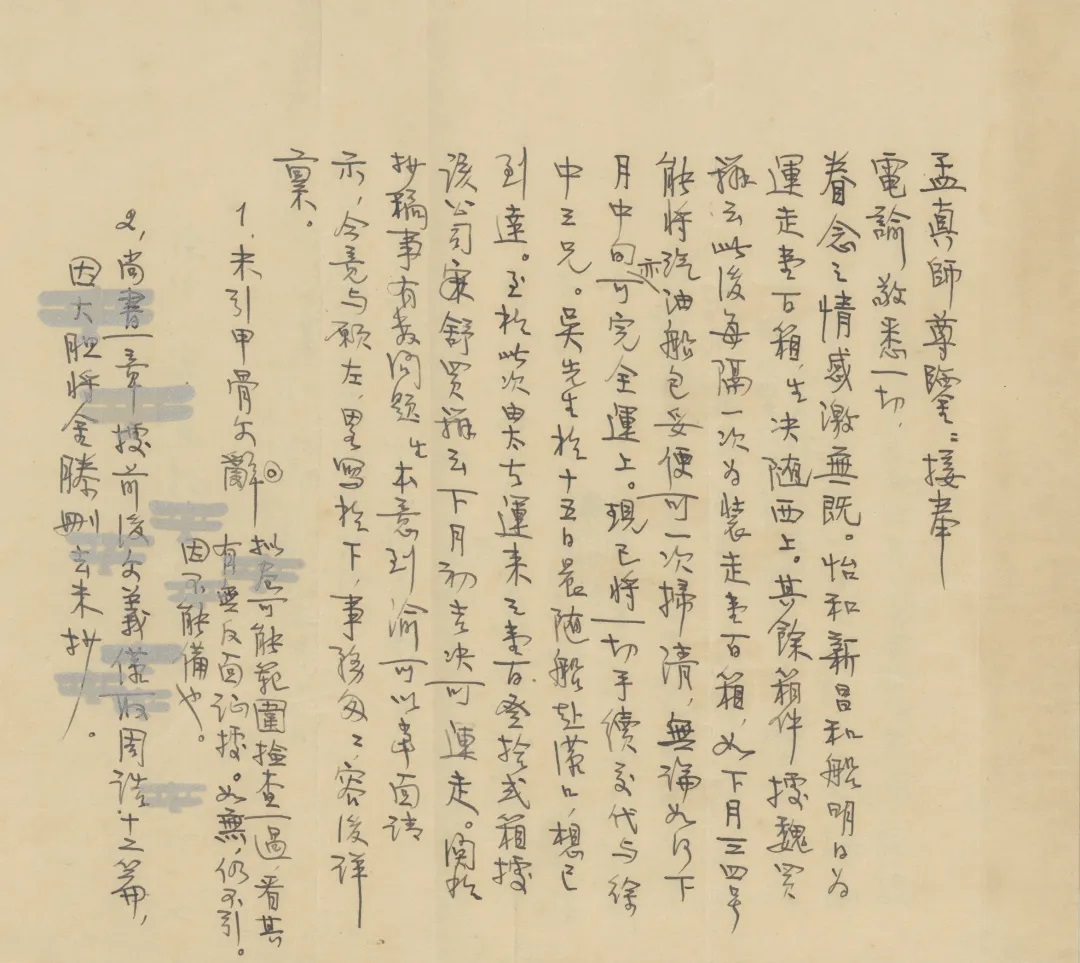 孟真師尊鑒：接奉
電諭敬悉一切，
眷念之情感激無既。怡和新昌和船明日為
運走壹百箱，生決隨西上。其餘箱件據魏買
辦云此後每隔一次為裝走壹百箱，如下月三四号
能將汽油船包妥便可一次掃清，無論如何下
月中旬亦可完全運上。現已將一切手續交代与徐
中三兄。吳先生於十五日晨隨船赴漢口，想已
到達。至於此次由太古運来之壹百壹拾弍箱據
該公司家舒買辦云下月初古決可運走。関於
抄稿事有数問題，生本意到渝可以畢面請
示，今竟与願左，畧寫於下，事務匆〻，容後詳
稟。
1. 未引甲骨文辭。
擬盡可能範圍檢查一過，看其
有無反面証據。如無，仍不引。
因不能備也。
2，尚書一章據前後文義僅取周誥十二篇，
因大胆將金滕刪去未抄。